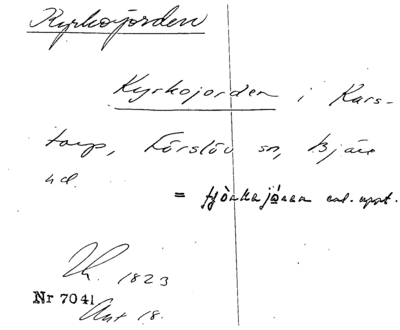 Kyrkojorden
Kyrkojorden i Kars-
torp, Förslöv sn, Bjäre
hd.
= çjörkajóran enl. uppt.
Lk. 1823
Nr 7041
Akt 18.